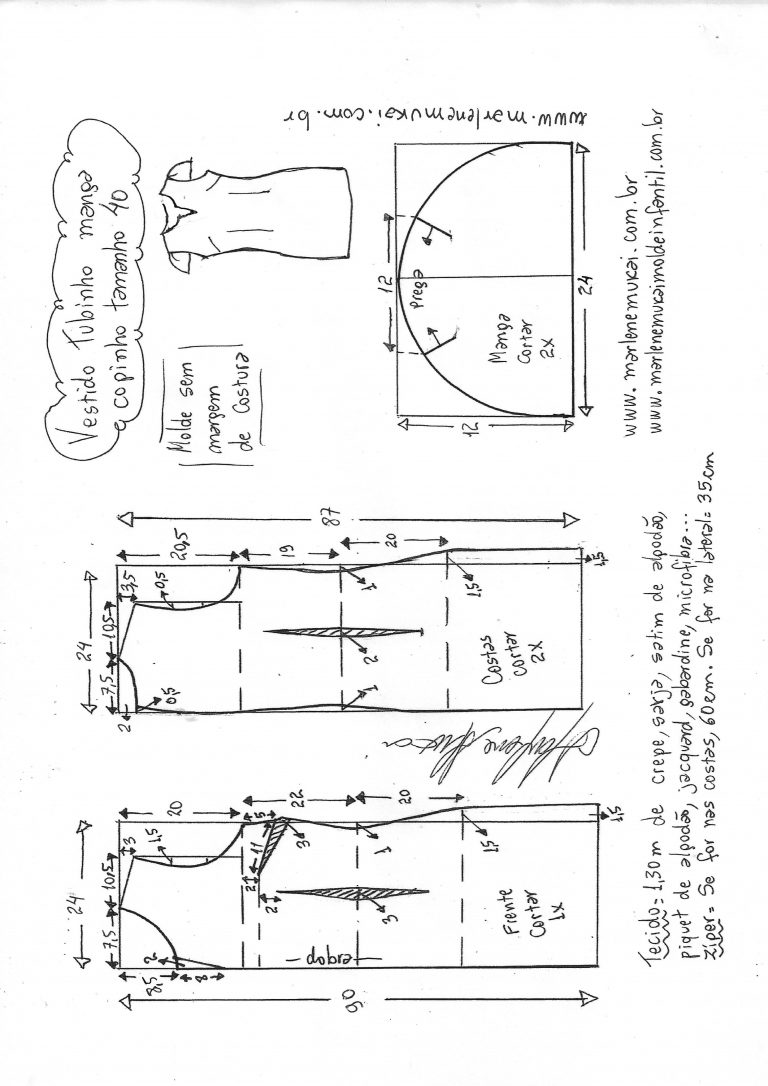 Vestido Tubinho manga
copinho tamanho 40
Molde sem
margem
de Costura
www.marlenemukai.com.br
12
Prega
Manga
Cortar
2x
12
24
www.marlenemukai.com.br
www.marlenemukaimoldeinfantil.com.br
24
7,5
10,5
3,5
20,5
19
20
87
2
0,5
0,5
1
2
1
1,5
1,5
Costas
cortar
2x
24
7,5
10,5
3
20
22
20
1,5
5
11
3
2
2
3
1
1,5
1,5
8,5
8
2
dobra
Frente
Cortar
1x
90
Tecido = 1,30m de crepe, sarja, satim de algodão,
piquet de algodão, jacquard, gabardine, microfibra...
zíper = Se for nas costas, 60cm. Se for na lateral = 35cm